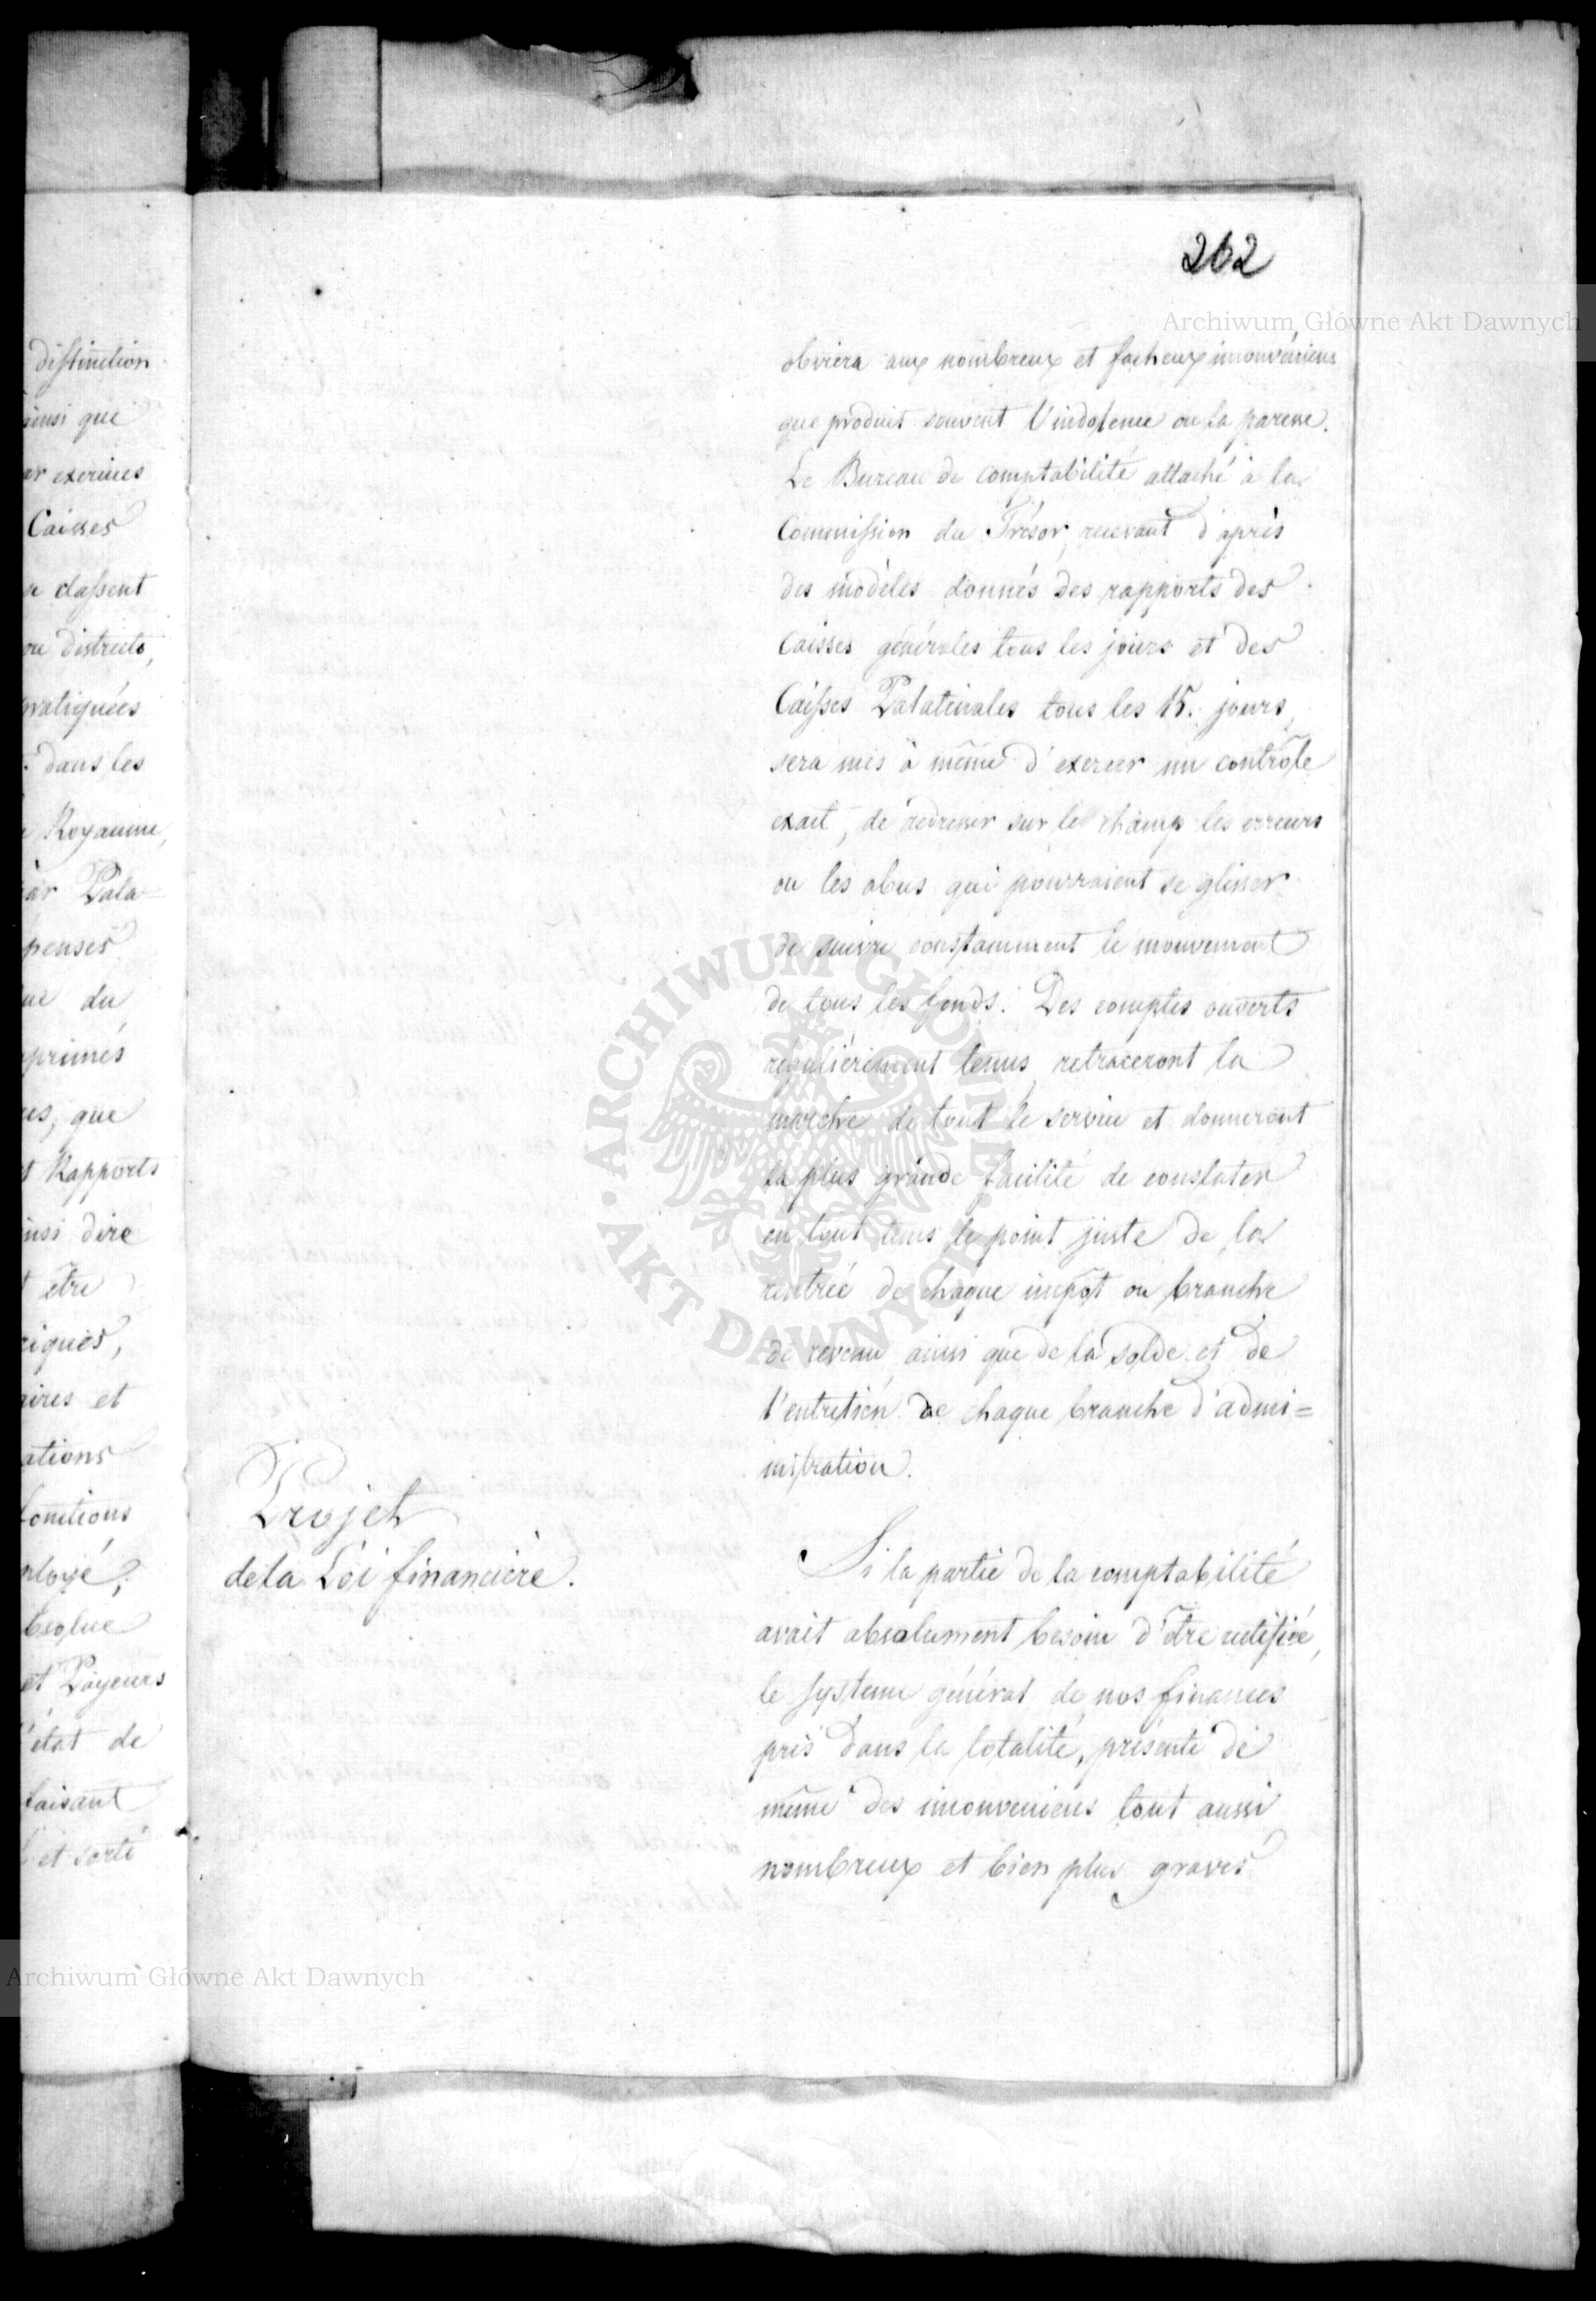 distinction
ainsi que
exercices
Caisses
classent
ou districts,
pratiquées
dans les
Royaume,
par Pala=
penses
du
primés
que
Rapports
dire
être
et
ations
fonctions
ployé,
bsolue
et Payeurs
l'état de
faisant
et sorti
262
Archiwum Główne Akt Dawnych
obviera aux nombreux et facheux inconvéniens
que produit souvent l'indolence ou la paresse.
Le Bureau de comptabilité attaché à la
Commission du Trésor, recevant d'après
des modèles donnés des rapports des
Caisses générales tous les jours et des
Caisses Palatinales tous les 15. jours,
sera mis à même d'exercer un contrôle
exact, de redresser sur le champ les erreurs
ou les abus qui pourraient se glisser
de suivre constamment le mouvement
de tous les fonds. Des comptes ouverts
régulièrement tenus retraceront la
marche de tout le service et donneront
la plus grande facilité de constater
en tout tems le point juste de la
rentrée de chaque impôt ou branche
de revenu, ainsi que de la solde et de
l'entretien de chaque branche d'admi=
nistration.
Projet
de la Loi financière.
Si la partie de la comptabilité
avait absolument besoin d'être rectifiée,
le systeme général de nos finances
pris dans la totalité, présente de
même des inconveniens tout aussi
nombreux et bien plus graves
ARCHIWUM GŁÓWNE AKT DAWNYCH
Archiwum Główne Akt Dawnych